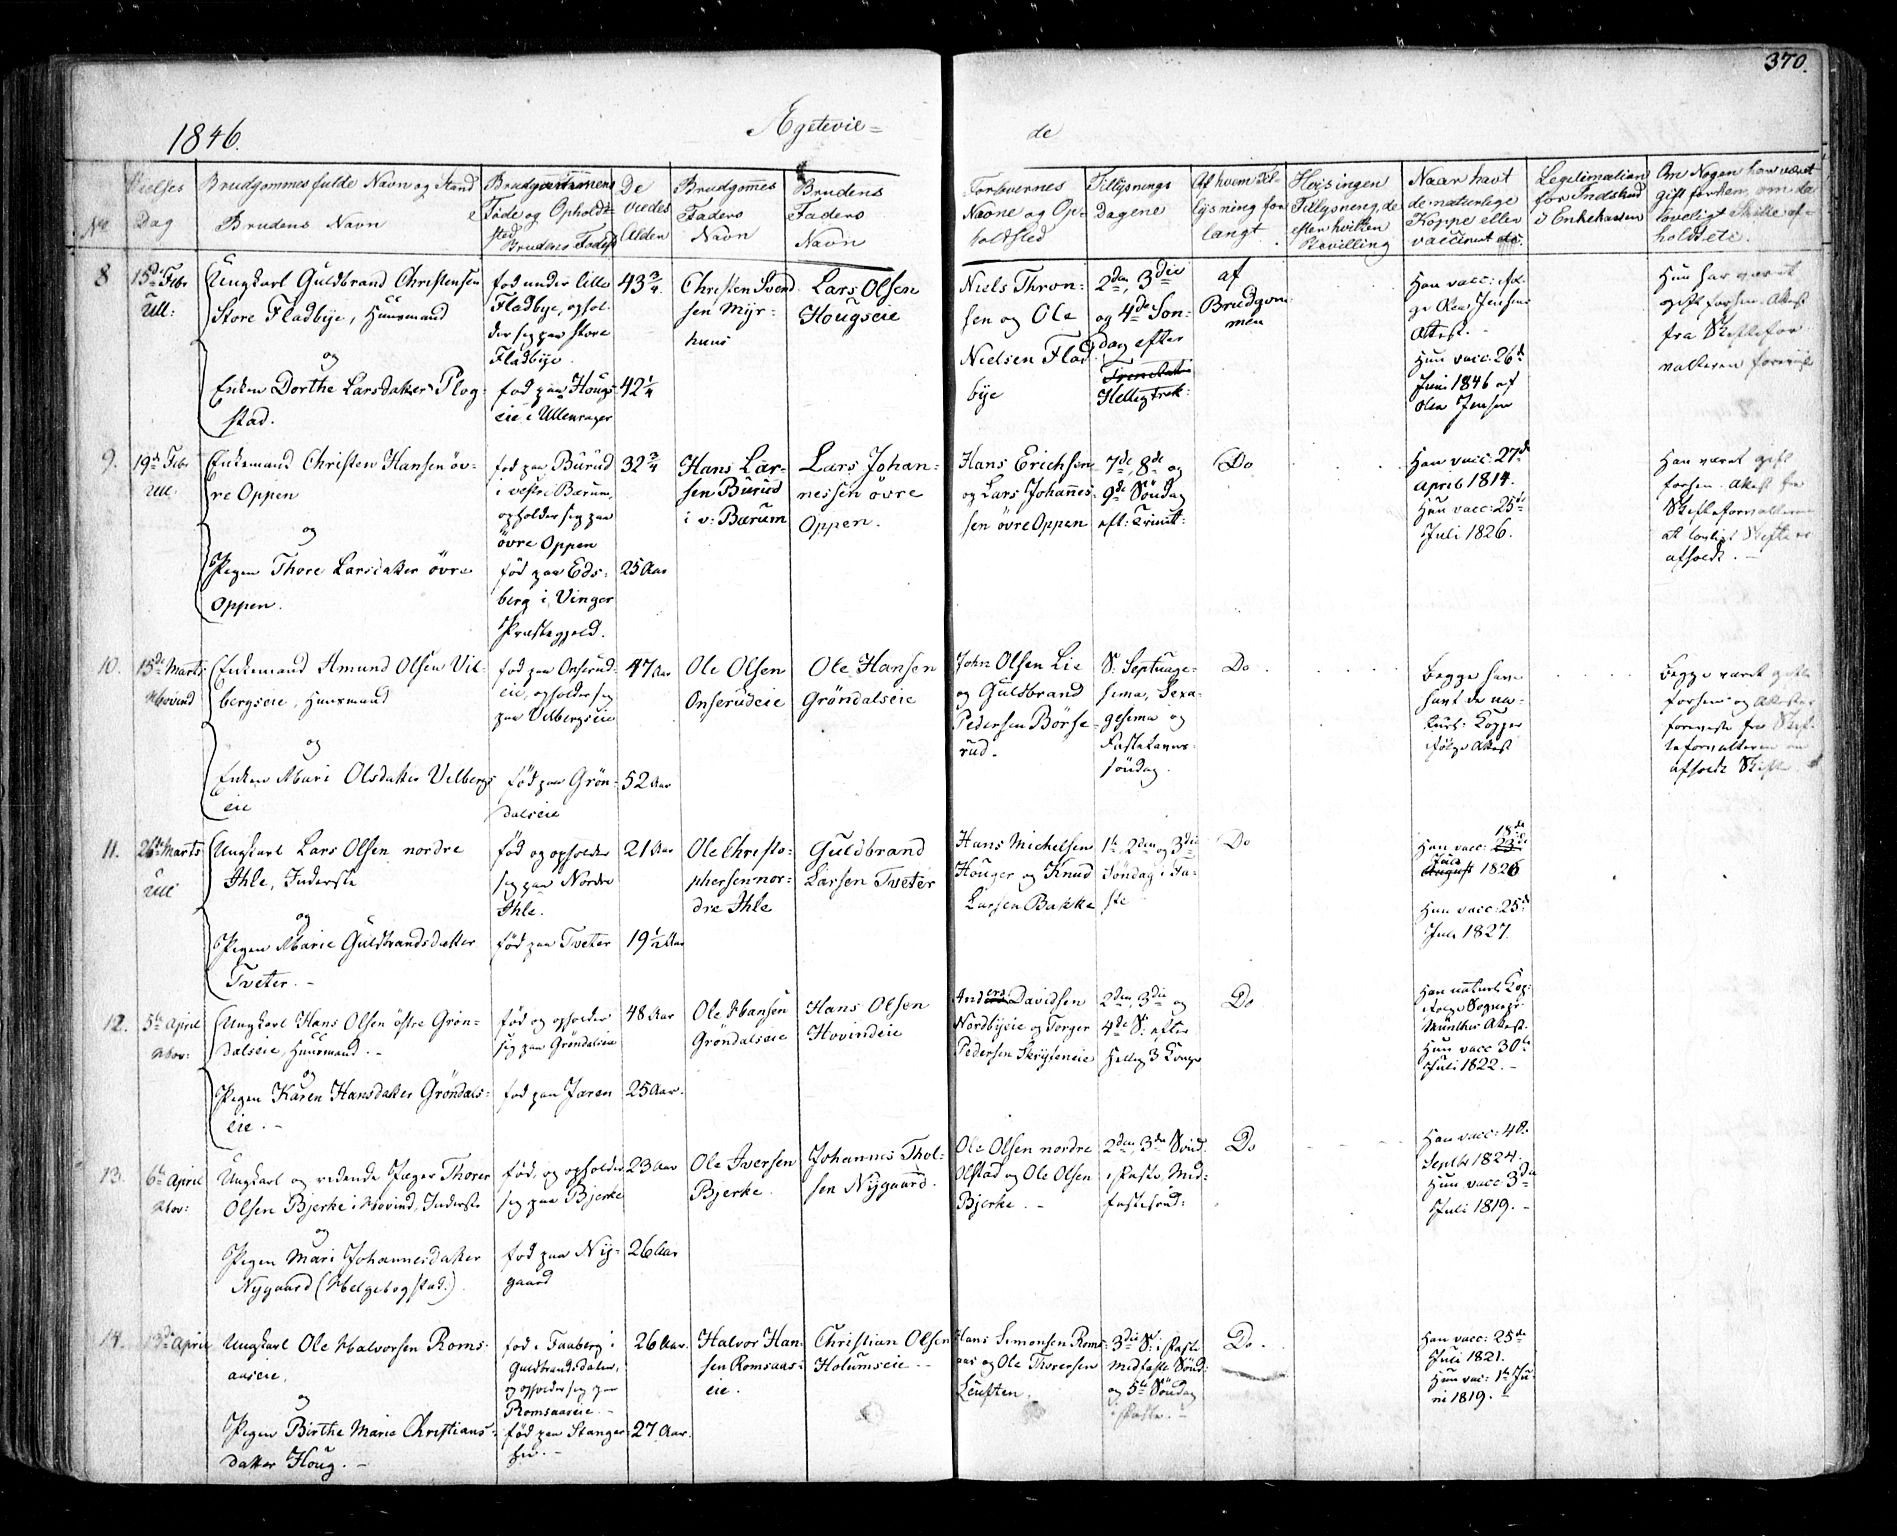 370.
1846.
Ægtevie=
de
No
Vielses
Dag
Brudgommes fulde Navn og Stand
Brudens Navn
Brudgommens
Føde og Opholds
sted
Brudens Fødest
De
viedes
Alder
Brudgomes
Faders
Navn
Brudens
Faders
Navn
Forlovernes
Navne og Op-
holdsted
Tillysnings
Dagene
Af hvem Til-
lysning for
langt
Hvis ingen
Tillysning, da
efter hvilken
Bevilling
Naar havt
de naturlige
Koppe eller
vaccineret
Legitimation
for Indskud
i Enkekassen
Om Nogen har været
gift forhen, om da
lovligt Skifte af-
holdt etc.
8
15de Febr
Ull:
Ungkarl Guldbrand Christensen
Store Fladbye, Huusmand
og
Enken Dorthe Larsdatter Plog-
stad.
fød under lille
Fladbye, ophol-
der sig paa store
Fladbye.
fød paa Hougs-
eie i Ullensager
43 3/4
42 1/4
Christen Svend-
sen Myr-
huus
Lars Olsen
Hougseie
Niels Thron-
sen og Ole
Nielsen Flad-
bye
2den, 3die
og 4de Søn-
dag efter
Hellig trek:
af
Brudgom
men
Han vacc: iføl-
ge Ole Jensens
Attest. -
Hun vacc: 26de
Juni 1846 af
Ole Jensen
Hun har været
gift forhen. Attest
fra Skiftefor-
valteren foreviist
9.
19de Febr
Ull:
Enkemand Christen Hansen øv-
re Oppen
og
Pigen Thore Larsdatter øvre
Oppen.
fød paa Burud
i vestre Bærum,
opholder sig paa
øvre Oppen
fød paa Eds-
berg i Vinger
Præstegjeld.
32 3/4
25 Aar
Hans Lar-
sen Burud
i v: Bærum
Lars Johan-
nessen øvre
Oppen.
Hans Erichsen
og Lars Johannes-
sen øvre Oppen
7de, 8de og
9de Søndag
eft: Trinit:
Do
Han vacc: 27de
April 1814.
Hun vacc: 25de
Juli 1826.
Han været gift
forhen. Attest fra
Skifteforvalteren
at lovligt Skifte er
afholdt. -
10.
15de Marts
Hovind
Enkemand Amund Olsen Vil-
bergseie, Huusmand
og
Enken Mari Olsdatter Vilbergs
eie
fød paa Onsrud-
eie, opholder sig
paa Vilbergseie
fød paa Grøn-
dalseie
47 Aar
52 Aar
Ole Olsen
Onserudeie
Ole Hansen
Grøndalseie
John Olsen Lie
og Guldbrand
Pedersen Børse-
rud.
S: Septuage-
sima, Sexa-
gesima og
Fastelavns-
søndag.
Do
Begge have
havt de na-
turl: Kopper
ifølge Attest
Begge været gifte
forhen og Attester
foreviste fra Skif-
teforvalteren om
afholdt Skifte.
11.
26de Marts
Ull
Ungkarl Lars Olsen nordre
Ihle, Inderste
og
Pigen Marie Guldbrandsdatter
Tveter. -
fød og opholder
sig paa Nordre
Ihle.
fød paa Tveter
21 Aar
19 1/2 Aar
Ole Christo-
phersen nor-
dre Ihle
Guldbrand
Larsen Tveter
Hans Michelsen
Houger og Knud
Larsen Bakke
1ste, 2den og 3die
Søndag i Fa-
ste
Do
18de
Han vacc: 23de
Juli
August 1826
Hun vacc: 25de
Juli 1827.
12.
5te April
Hov:
Ungkarl Hans Olsen østre Grøn-
dalseie, Huusmand. -
og
Pigen Karen Hansdatter Grøndals-
eie. -
fød og opholder
sig paa Grøndalseie
fød paa Jaren
48 Aar
25 Aar.
Ole Hansen
Grøndalseie
Hans Olsen
Hovindeie
Anders Davidsen
Nordbyeie og Torger
Pedersen Skryseneie
2den, 3die og
4de S: efter
Hellig 3 Konge
Do
Han naturl: Kop:
ifølge Sognepr:
Münthes Attest.
Hun vacc 30te
Juli 1822. -
13.
6te April
Hov:
Ungkarl og ridende Jæger Thorer
Olsen Bjerke i Hovind, Inderste
og
Pigen Mari Johannesdatter
Nygaard (Helgebogstad.)
fød, og opholder
sig paa Bjerke
fød paa Ny-
gaard
23 Aar
26 Aar
Ole Iversen
Bjerke.
Johannes Thol-
sen Nygaard.
Ole Olsen nordre
Olstad og Ole Olsen
Bjerke. -
2den, 3die Sønd.
i Faste, Mid-
fastesønd:
Do
Han vacc: 4de
Septbr 1824.
Hun vacc 3die
Juli 1819. -
14.
13de April
Ungkarl Ole Halvorsen Roms-
aaseie,
og
Pigen Birthe Marie Christians-
datter Houg. -
fød i Faaberg i
Guldbrandsdalen,
og opholder sig paa
Romsaaseie. -
fød paa Stanger-
hu. -
26 Aar.
27 Aar.
Halvor Han-
sen Romsaas-
eie.
Christian Olsen
Holumseie. -
Hans Simonsen Roms-
aas og Ole Thorersen
Leuften.
3die S: i Faste
Midfaste Sønd:
og 5te Søndag
i Faste. -
Do.
Han vacc: 25de
Juli 1821.
Hun vac: 1ste Ju-
ni 1819. -